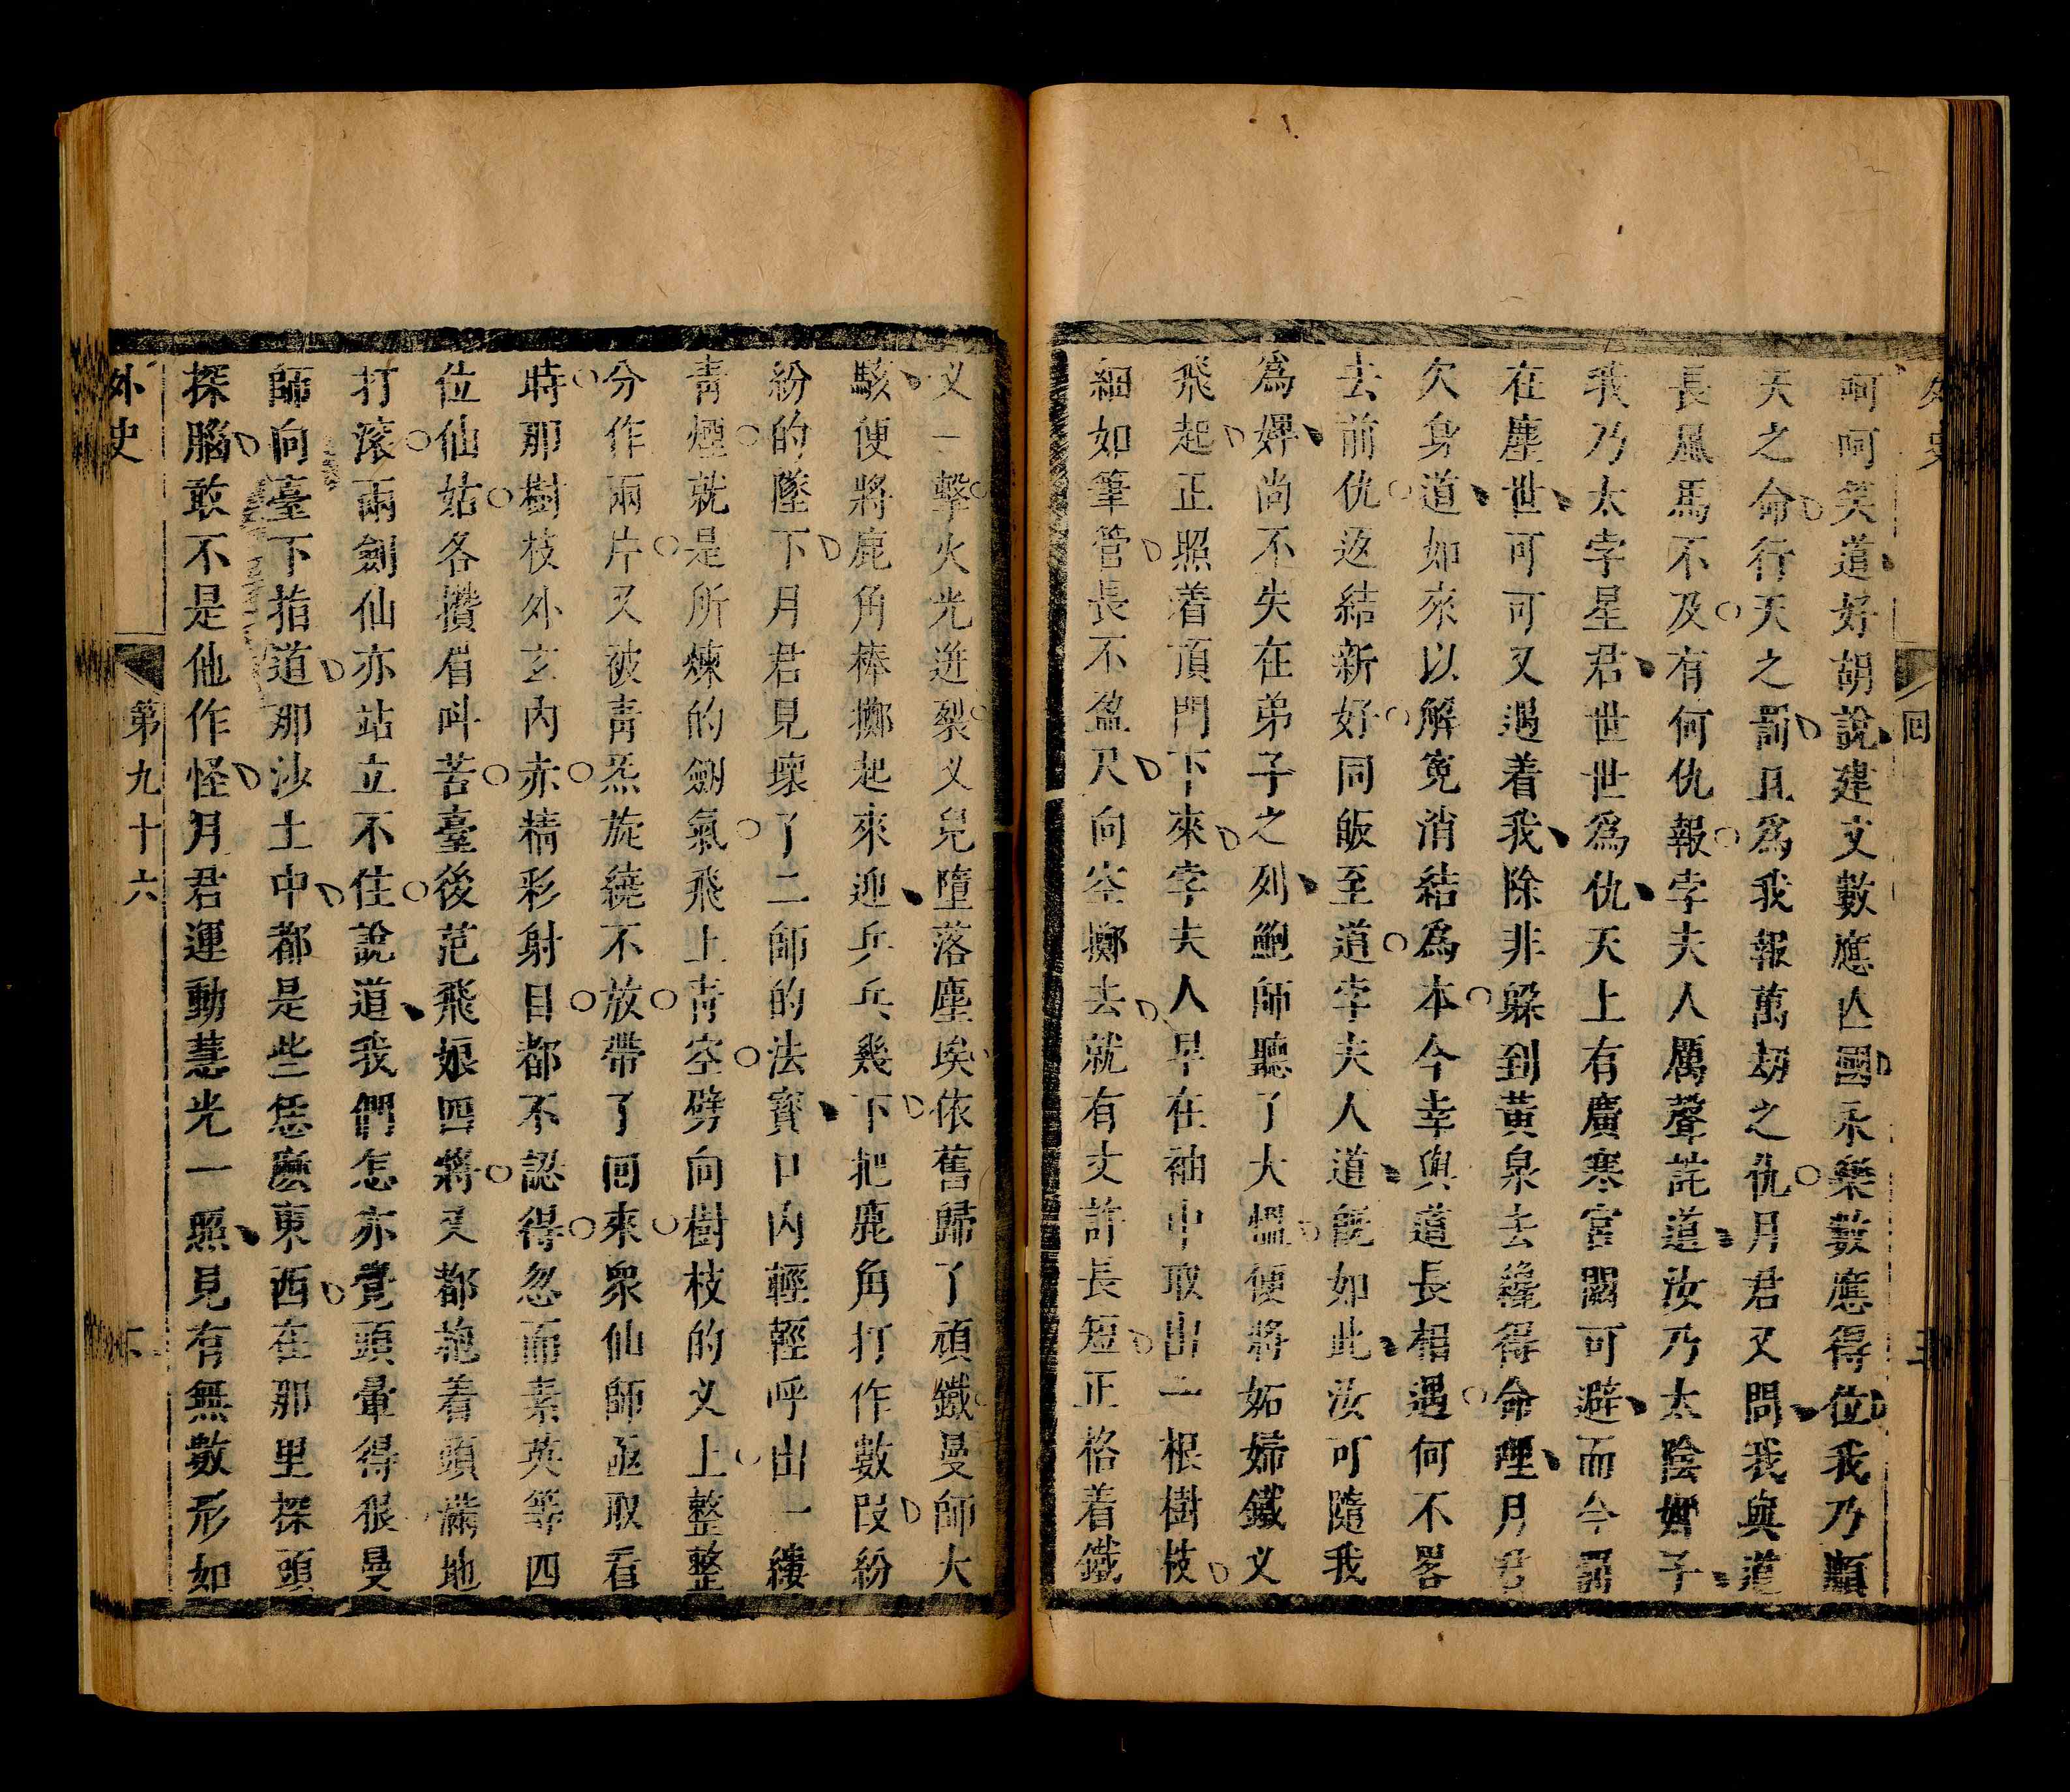 外史
回
呵呵笑道好胡說建文數應亾國永樂數應得位我乃順
天之命行天之罰且爲我報萬劫之仇月君又問我與道
長風馬不及有何仇報孛夫人厲聲詫道汝乃太陰嬖子
我乃太孛星君世世爲仇天上有廣寒宮闕可避而今謫
在塵世可可又遇着我除非躱到黃泉去纔得命哩月君
欠身道如來以解寃消結爲本今幸與道長相遇何不畧
去前仇返結新好同皈至道孛夫人道旣如此汝可隨我
爲婢尚不失在弟子之列鮑師聽了大慍便將妬婦鐵义
飛起正照着頂門下來孛夫人早在袖中取出一根樹枝
細如筆管長不盈尺向空擲去就有丈許長短正格着鐵
义一擊火光迸裂义兒墮落塵埃依舊歸了頑鐵曼師大
駭便將鹿角棒擲起來迎乒乒幾下把鹿角打作數段紛
紛的墜下月君見壞了二師的法寳口内輕輕呼出一縷
青煙就是所煉的劒氣飛上靑空劈向樹枝的义上整整
分作兩片又被靑炁旋繞不放帶了回來衆仙師亟取看
時那樹枝外玄内赤精彩射目都不認得忽而素英等四
位仙姑各攢眉呌苦臺後范飛娘四將又都抱着頭滿地
打滚兩劍仙亦站立不住說道我們怎亦覺頭暈得很曼
師向臺下指道那沙土中都是些恁麽東西在那里探頭
探腦敢不是他作怪月君運動慧光一照見有無數形如
外史
第九十六